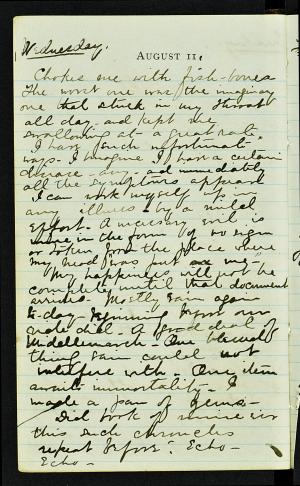 Wednesday.
AUGUST 11,
Chokes me with fish-bones
The worst one was the imaginary
one that stuck in my throat
all day - and kept me
swallowing at a great rate.
I have such unfortunate
ways. I imagine I have a certain
disease - any - and immediately
all the symptoms appear
I can work myself up to
any illness by a mild
effort. A necessary evil is
more in the form of no sign
or token from the place where
my head was put on me -
My happiness will not be
complete until that document
arrives. Mostly rain again
to-day
note did. A good deal of
Middlemarch - One blessed
thing rain could not
interfere with. One item
immortality. I
made a pan of
Did book of mine in
this such chronicles
repeat before. Echo -
Echo -